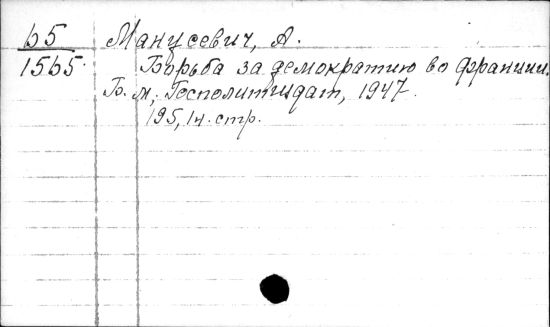 65
1565.
Манусевич, А.
Борьба за демократию во франции.
Б. м., Госполитиздат, 1947.
195, 1н. стр.